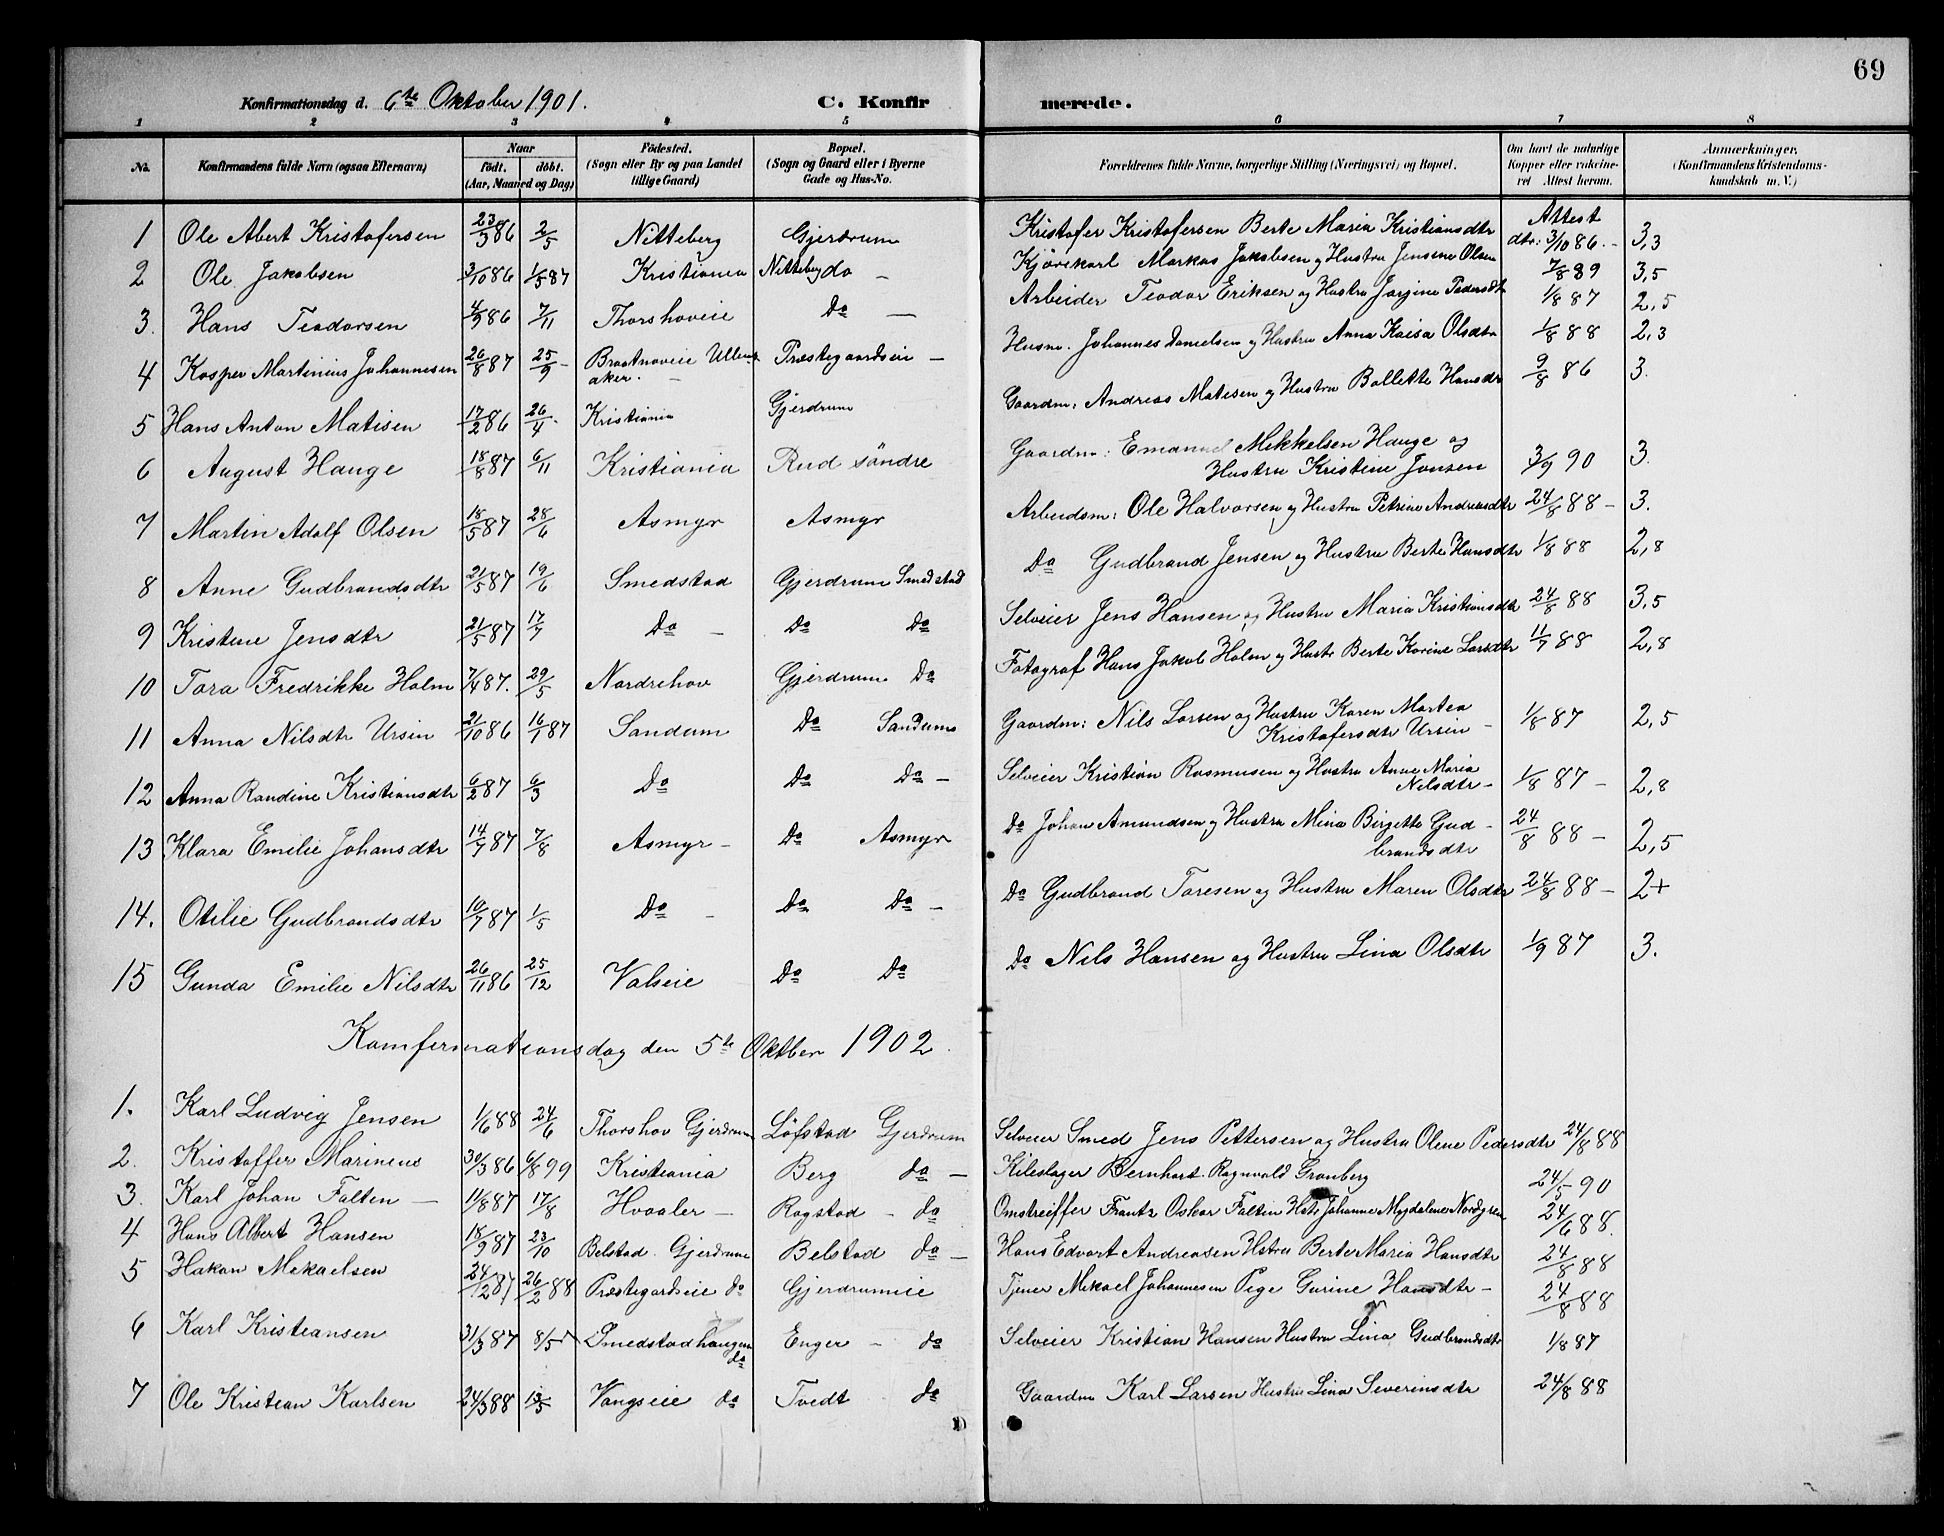 69
Konfirmationsdag d. 6te Oktober 1901. C. Konfirmerede.
1 2 3 4 5 6 7 8
No. Konfirmandens fulde Navn (ogsaa Efternavn) Naar födt. döbt. (Aar, Maaned og Dag) Födested. (Sogn eller By og paa Landet tillige Gaard) Bopæl. (Sogn og Gaard eller i Byerne Gade og Hus-No. Forældrenes fulde Navne, borgerlige Stilling (Næringsvei) og Bopæl. Om havt de naturlige Kopper eller vaccineret Attest herom. Anmærkninger, (Konfirmandens Kristendomskundskab m. V.)
1 Ole Abert Kristofersen 23/3 86 2/5 Nitteberg Gjerdrum Kristofer Kristofersen Berte Maria Kristiansdtr Attest dtr: 3/10 86. - 3,3
2 Ole Jakobsen 3/10 86 1/5 87 Kristiania Nitteberg do - Kjörekarl Markus Jakobsen og Hustru Jensine Olsen 7/8 89 3,5
3. Hans Teodorsen 4/9 86 7/11 Thorshoveie Do - Arbeider Teodor Eriksen og Hustru Jorgine Pedersdtr 1/8 87 2,5
4 Kasper Martinius Johannesen 26/8 87 25/9 - Braatnoveie Ullensaker. - Præstegaardseie - Husm. Johannes Danielsen og Hustru Anna Kaisa Olsdtr 1/8 88 2,3
5 Hans Anton Matisen 17/2 86 26/4 - Kristiania Gjerdrum Gaardm: Andreas Matisen og Hustru Bollette Hansdtr 9/8 86 3.
6 August Hauge 18/8 87 6/11 Kristiania Rud söndre Gaardm: Emanuel Mikkelsen Hauge og
Hustru Kristine Jonsen 3/9 90 3.
7 Martin Adolf Olsen 18/5 87 28/6 Asmyr Asmyr Arbeidsm: Ole Halvorsen og Hustru Petrine Andreasdtr 24/8 88 - 3.
8 Anne Gudbrandsdtr 21/5 87 19/6 Smedstad Gjerdrum Smedstad Do Gudbrand Jensen og Hustru Berte Hansdtr 1/8 88 2,8
9 Kristine Jensdtr 21/5 87 17/7 Do - Do Do Selveier Jens Hansen og Hustru Maria Kristiansdtr 24/8 88 3,5
10 Tora Fredrikke Holm 7/4 87. 29/5 Nordrehov Gjerdrum Do Fotograf Hans Jakob Holm og Hustr Berte Karine Larsdtr 11/7 88 2,8
11 Anna Nilsdtr Ursin 21/10 86 16/1 87 Sandum Do Sandum Gaardm: Nils Larsen og Hustru Karen Martea
Kristofersdtr Ursin - 1/8 87 2,5
12 Anna Randine Kristiansdtr 6/2 87 6/3 Do Do Do - Selveier Kristian Rasmusen og Hustru Anne Maria
Nilsdtr - 1/8 87 - 2,8
13 Klara Emilie Johansdtr 14/7 87 7/8 Asmyr - Do Asmyr Do Johan Amundsen og Hustru Mina Birgette Gud-
brandsdtr 24/8 88 - 2,5
14. Otilie Gudbrandsdtr 10/7 87 1/5 Do - Do Do - Do Gudbrand Toresen og Hustru Maren Olsdtr 24/8 88 - 2+
15 Gunda Emilie Nilsdtr 26/11 86 25/12 Valseie Do Do Do Nils Hansen og Hustru Lina Olsdtr 1/9 87 3.
Komfermationsdag den 5te Oktber 1902.
1. Karl Ludvig Jensen 1/6 88 24/6 Thorshov Gjerdrum Löfstad Gjerdrum Selveier Smed Jens Pettersen og Hustru Olene Pedersdtr 24/8 88
2. Kristoffer Marineus 30/3 86 6/8 99 Kristiania Berg do - Kileslager Bernhart Ragnvald Gronberg 24/5 90
3. Karl Johan Falten - 11/8 87 17/8 Hvaaler - Rogstad - do Omstreiffer Frantz Oskar Faltin Hstr Johanne Magdalene Nordgren 24/6 88.
4 Hans Albert Hansen 18/9 87 23/10 Belstad. Gjerdrum Belstad do - Hans Edvart Andreasen Hstru Berte Maria Hansdtr 24/8 88
5 Hakon Mekaelsen 24/12 87 26/2 88 Præstegardseie do Gjerdrumeie Tjener Mekael Johannesen Pige Gurine Hansdtr - 24/8 88
6 Karl Kristiansen 31/3 87 8/5 Smedstadhaugen do Enger - do Selveier Kristian Hansen Hustru Lina Gudbrandsdtr 1/8 87
7 Ole Kristian Karlsen 24/3 88 13/5 Vangseie do Tvedt do Gaardm Karl Larsen Hustru Lina Severinsdtr 24/8 88